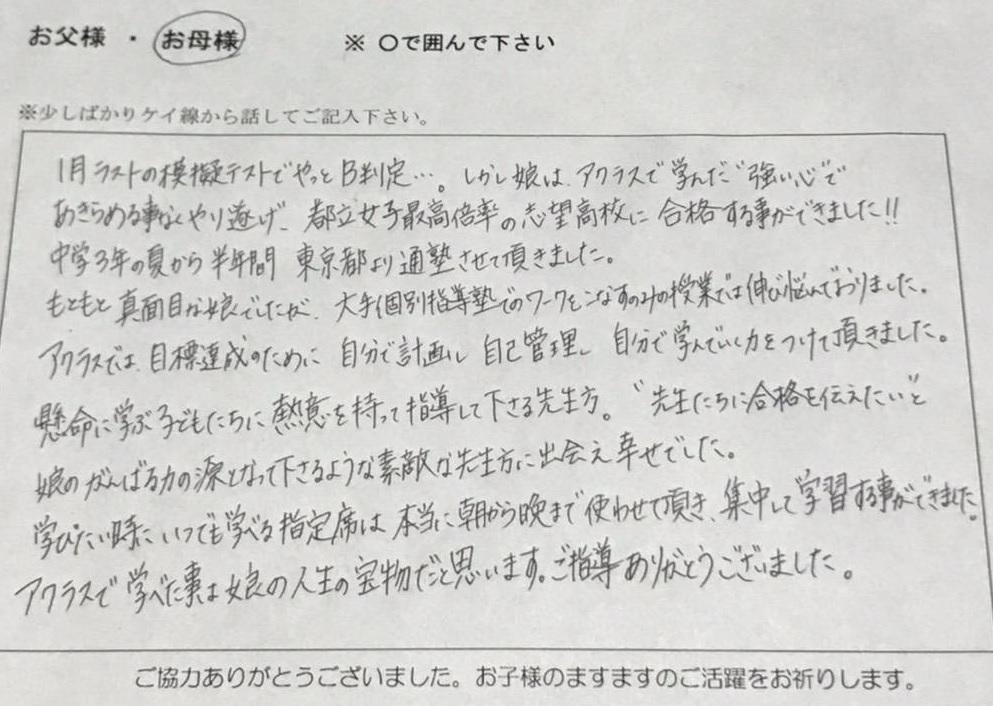 お父様 ・ お母様 ※ ○で囲んで下さい
※少しばかりケイ線から話してご記入下さい。
1月ラストの模擬テストでやっとB判定…。しかし娘は、アクラスで学んだ“強い心”で
あきらめる事なくやり遂げ、都立女子最高倍率の志望高校に合格する事ができました!!
中学3年の夏から半年間 東京都より通塾させて頂きました。
もともと真面目な娘でしたが、大手個別指導塾でのワークをこなすのみの授業では伸び悩んでおりました。
アクラスでは、目標達成のために 自分で計画し 自己管理し 自分で学んでいく力をつけて頂きました。
懸命に学ぶ子どもたちに熱意を持って指導して下さる先生方。“先生たちに合格を伝えたい”と
娘のがんばる力の源となって下さるような素敵な先生方に出会え幸せでした。
学びたい時にいつでも学べる指定席は本当に朝から晩まで使わせて頂き、集中して学習する事ができました。
アクラスで学べた事は娘の人生の宝物だと思います。ご指導ありがとうございました。
ご協力ありがとうございました。お子様のますますのご活躍をお祈りします。